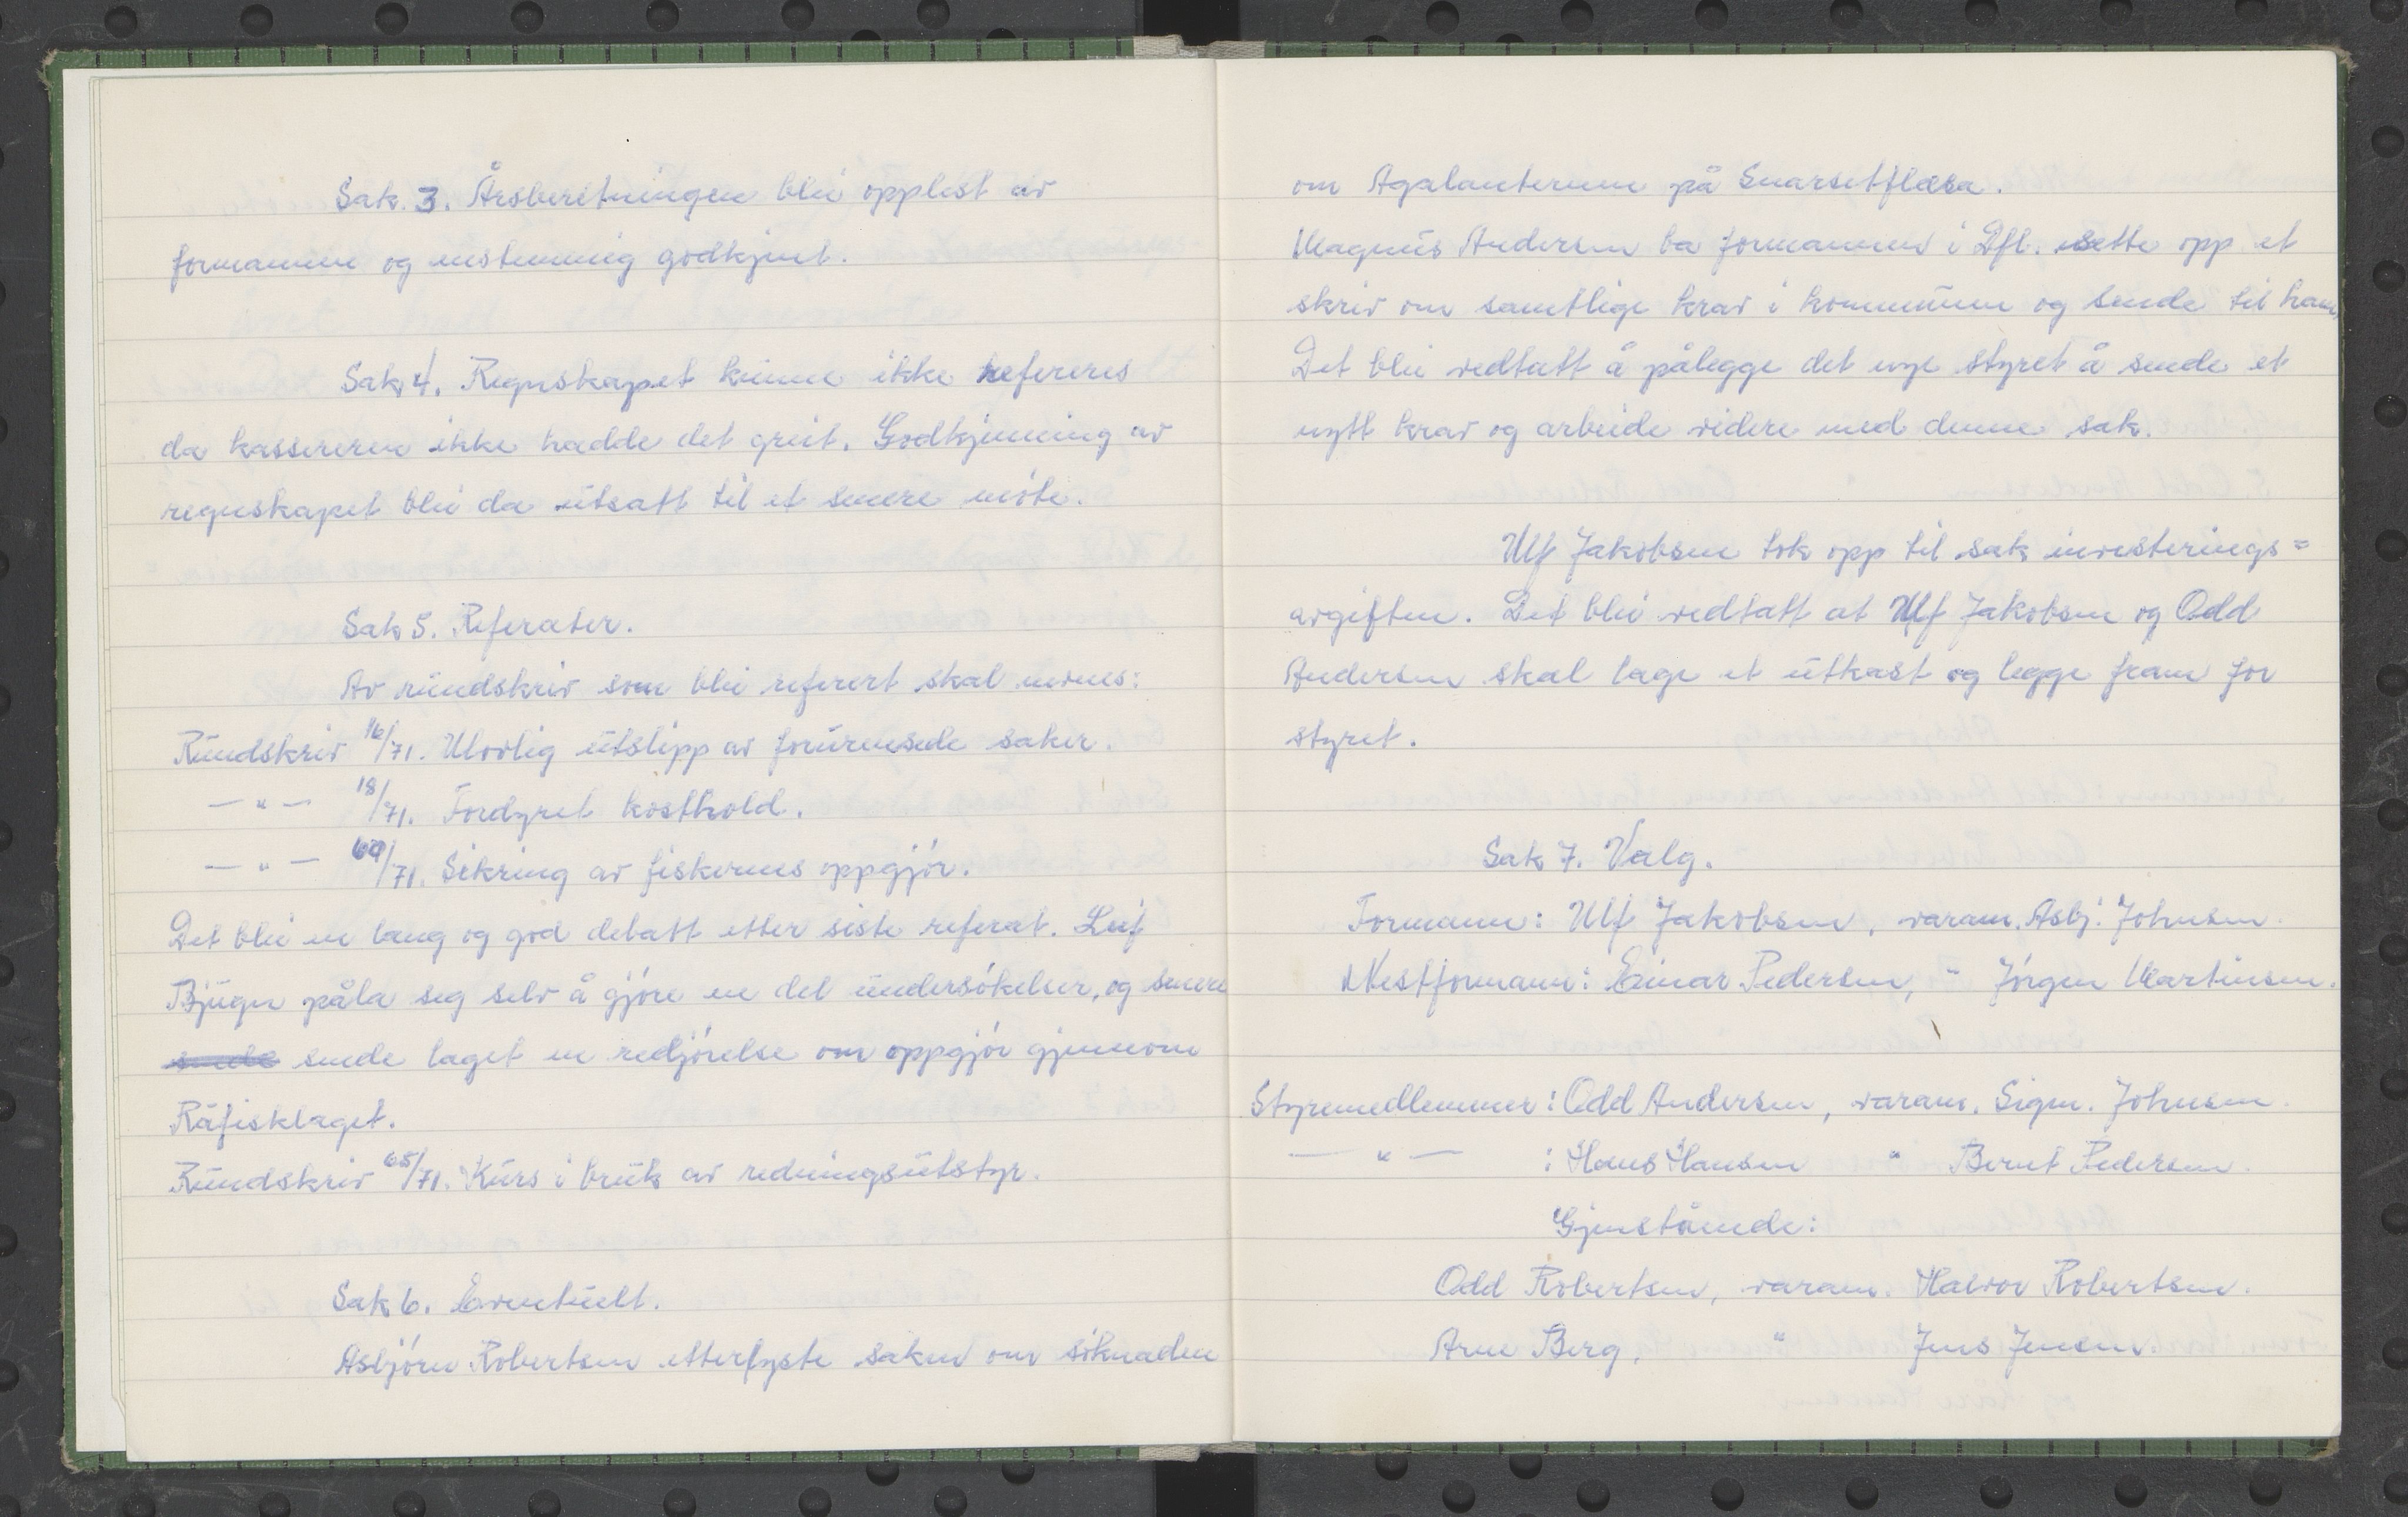 Sak 3. Årsberetningen blei opplest av
formannen og enstemmig godkjent.
Sak 4. Regnskapet kunne ikke refereres
da kassereren ikke hadde det greit. Godkjenning av
regnskapet blei da utsatt til et senere møte.
Sak 5. Referater.
Av rundskriv som blei referert skal nevnes:
Rundskriv 16/71. Ulovlig utslipp av forurensede saker.
— " — 18/71. Fordyret kosthold.
— " — /71. Sikring av fiskernes oppgjør.
Det blei en lang og god debatt etter siste referat. Leif
Bjugn påla seg selv å gjøre en del undersøkelser, og senere
sende laget en redjørelse om oppgjør gjennom
Råfisklaget.
Rundskriv 65/71. Kurs i bruk av redningsutstyr.
Sak 6. Eventuelt.
Asbjørn Robertsen etterlyste saken om søknaden
om Agalanterne på
Magnus Andersen ba formannen i Dfl. sette opp et
skriv om samtlige krav i kommunen og sende til ham.
Det blei vedtatt å pålegge det nye styret å sende et
nytt krav og arbeide videre med denne sak.
Ulf Jakobsen tok opp til sak investerings=
avgiften. Det blei vedtatt at Ulf Jakobsen og Odd
Andersen skal lage et utkast og legge fram for
styret.
Sak 7. Valg.
Formann: Ulf Jakobsen, varam. Asbj. Johnsen.
Nestformann: Einar Pedersen, " Jørgen Martinsen.
Styremedlemmer: Odd Andersen, varam. Sigm. Johnsen.
— " — : Hans Hansen " Bernt Pedersen.
Gjenstående:
Odd Robertsen, varam. Halvor Robertsen.
Arne Berg, " Jens Jensen.